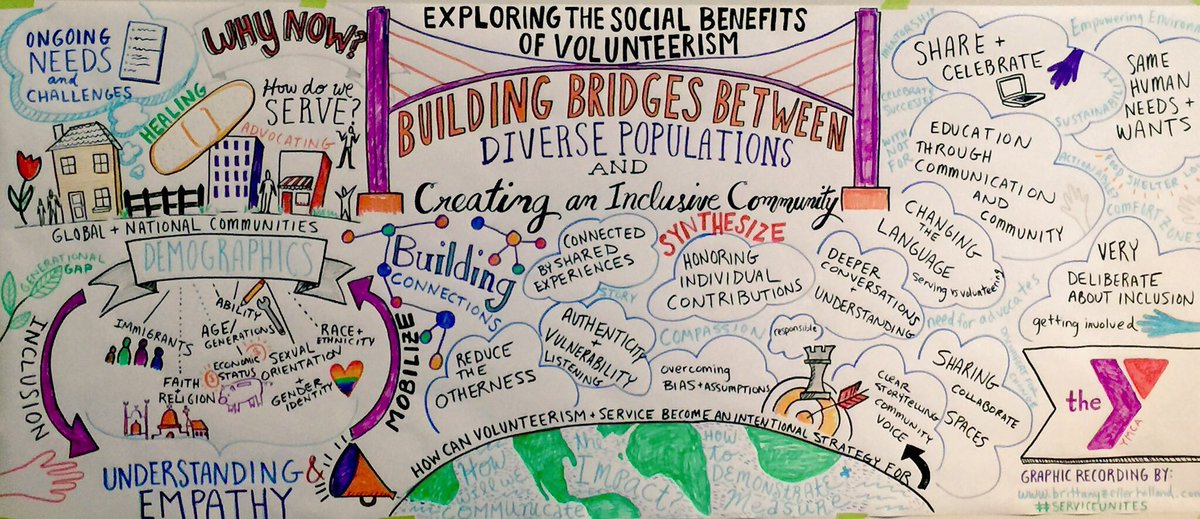 ONGOING
NEEDS
and
CHALLENGES
WHY NOW?
HEALING
How do we
SERVE?
ADVOCATING
GLOBAL + NATIONAL COMMUNITIES
EXPLORING THE SOCIAL BENEFITS
OF VOLUNTEERISM
BUILDING BRIDGES BETWEEN
DIVERSE POPULATIONS
AND
Creating an Inclusive Community
DEMOGRAPHICS
GENERATIONAL
GAP
INCLUSION
MOBILIZE
IMMIGRANTS
ABILITY
AGE/
GENERATIONS
RACE+
ETHNICITY
ECONOMIC
STATUS
SEXUAL
ORIENTATION
+
GENDER
IDENTITY
FAITH
RELIGION
UNDERSTANDING &
EMPATHY
Building
CONNECTIONS
CONNECTED
BY SHARED
EXPERIENCES
STORY
SYNTHESIZE
HONORING
INDIVIDUAL
CONTRIBUTIONS
DEEPER
CONVERSATIONS
+
UNDERSTANDING
CHANGING
THE
LANGUAGE
serving vs volunteering
REDUCE
THE
OTHERNESS
AUTHENTICITY
+
VULNERABILITY
LISTENING
COMPASSION
overcoming
BIAS+ASSUMPTIONS
responsible
CLEAR
STORYTELLING
COMMUNITY
VOICE
SHARING
COLLABORATE
SPACES
need for advocates
HOW CAN VOLUNTEERISM + SERVICE BECOME AN INTENTIONAL STRATEGY FOR
How
will we
COMMUNICATE
the
IMPACT
HOW
to
DEMONSTRATE
Measure
MENTORSHIP
SHARE +
CELEBRATE
CELEBRATE
SUCCESSES
WITH
NOT
FOR
EDUCATION
THROUGH
COMMUNICATION
AND
COMMUNITY
SUSTAINABILITY
SAME
HUMAN
NEEDS +
WANTS
FOOD SHELTER
COMFORT ZONE
VERY
DELIBERATE
ABOUT INCLUSION
getting involved
the
YMCA
GRAPHIC RECORDING BY:
##SERVICEUNITES